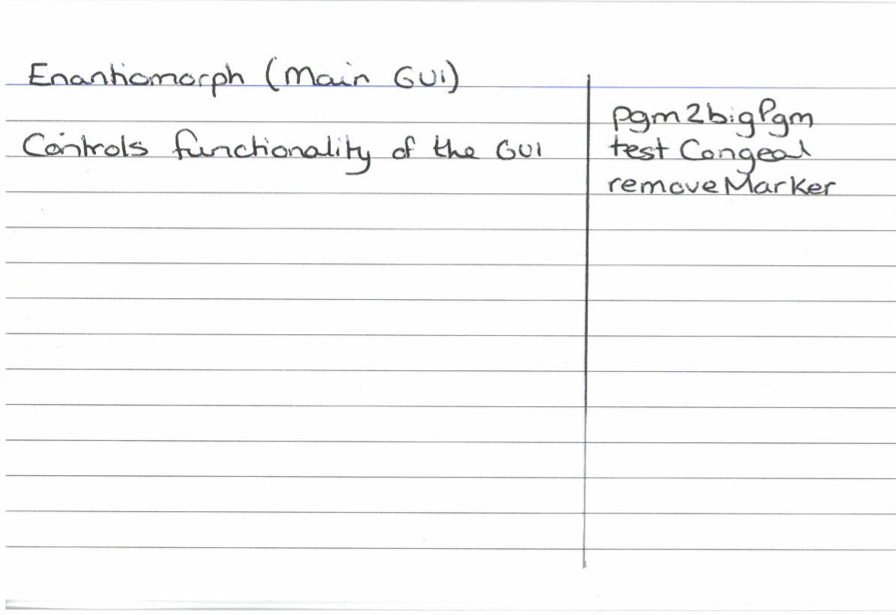 Enantiomorph (Main GUI)
Controls functionality of the GUI
pgm2bigPgm
test Congeal
removeMarker